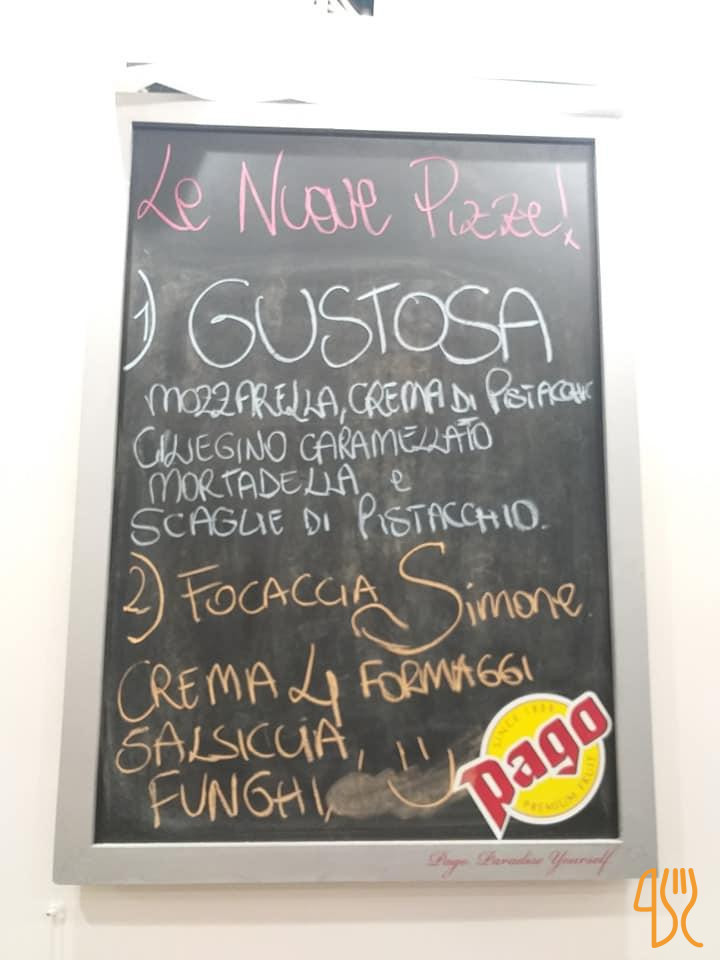 Le Nuove Pizze!
1) GUSTOSA
MOZZARELLA, CREMA DI PISTACCHIO
CILIEGINO CARAMELLATO
MORTADELLA e
SCAGLIE DI PISTACCHIO.
2) FOCACCIA Simone.
CREMA 4 FORMAGGI
SALSICCIA,
FUNGHI,
SINCE 1888
pago
PREMIUM FRUIT
Pago. Paradise Yourself.